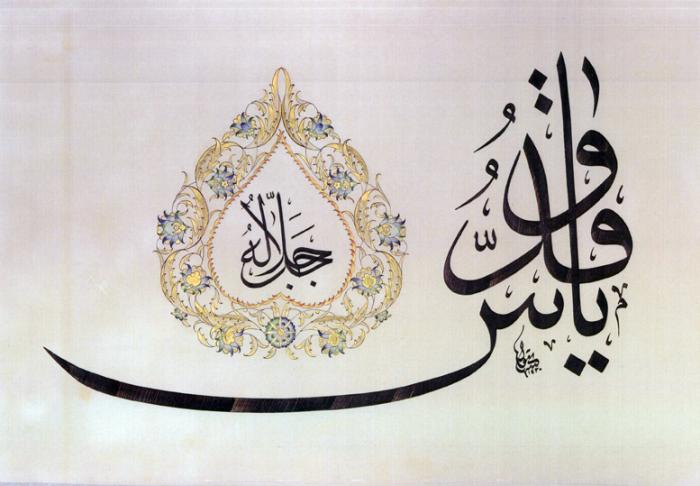 يا قدوس
جل جلاله